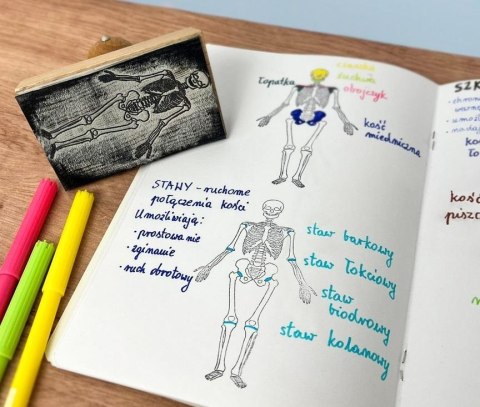 czaszka
łopatka
obojczyk
kość
miedniczna
STAWY - ruchome
połączenia kości
Umożliwiają:
• prostowanie
• zginanie
• ruch obrotowy
staw barkowy
staw łokciowy
staw
biodrowy
staw kolanowy
SZK
kość
piszc